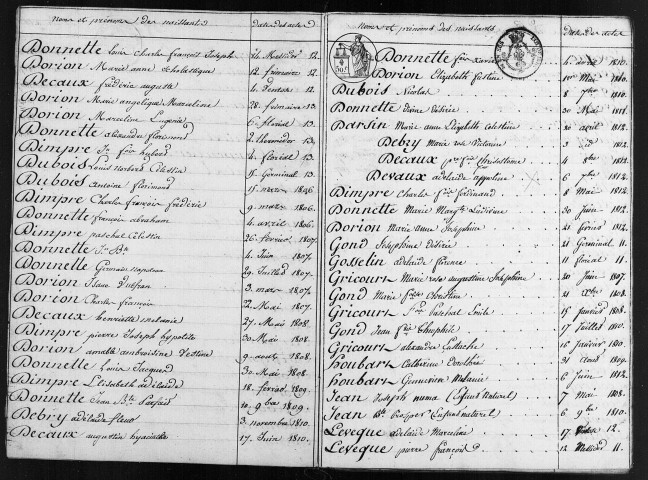 Noms et prénoms des naissants Dates des actes
Donnette Louis Charles françois Joseph 24 Messidor 12.
Dorion Marie anne Scholastique 12 frimaire 12.
Decaux frédéric auguste 4 Ventose 12.
Dorion Marie angelique Marceline 28 frimaire 13.
Dorion Marceline Eugenie 6 floréal 13.
Donnette alexandre florimond 2 thermidor 13.
Dimpre 4 floréal 13.
Dubois Louis Norbert Célestin 15 Germinal 13.
Dubois antoine florimond 15 mars 1806.
Dimpre Charles françois frédéric 9 mars 1806.
Donnette françois abraham 4 avril 1806.
Dimpre paschal Célestin 26 fevrier 1807.
Donnette Jn Bte 4 Juin 1807.
Donnette Germain napoleon 29 Juillet 1807.
Dorion 3 mars 1807.
Dorion Charles francois 22 Mai 1807.
Decaux henriette melanie 27 Mars 1808.
Dimpre pierre Joseph hypolite 20 Mai 1808.
Dorion amable ambroisine 9 aout 1808.
Donnette Louis Jacques 30 Mai 1808.
Dimpre Elisabeth adélaïde 18 fevrier 1809.
Donnette Jean Bte Parfait 10 9bre 1809.
Debry adélaïde fleur 3 novembre 1810.
Decaux augustin hyacinthe 17 Juin 1810.
Noms et prénoms des naissants Dates des actes
Donnette foix Xavier 4 avril 1810.
Dorion Elizabeth Justine Mai 1810.
Dubois Nicolas 8 7bre 1810.
Donnette Désiré 30 Mai 1811.
Darsin Marie anne Elizabeth Celestine 20 avril 1812.
Debry Marie rose Victorine 3 id 1812.
Decaux 4 8bre 1812.
Devaux adelaide appoline 6 7bre 1812.
Dimpre Charles foix ferdinand 8 Mai 1812.
Donnette Marie Margte Ludivine 30 Juin 1812.
Dorion Marie anne Joséphine 21 fevrier 1812.
Gond Joséphine Désirée 21 Germinal 11.
Gosselin adelaide 11 floréal 11.
Gricourt Marie rose augustine Joséphine 20 Juin 1807.
Gond Marie Christine 31 Xbre 1808.
Gricourt Paschal Emile 15 Janvier 1808.
Gond Jean Théophile 17 Juillet 1810.
Gricourt alexandre Eustache 16 fevrier 1810.
houbart Catherine Dorothée 21 avril 1809.
houbart Genevieve Melanie 6 Juin 1812.
Jean Joseph numa (Enfant Naturel) 7 Mai 1808.
Jean Bte Prosper (Enfant naturel) 6 9bre 1810.
Leveque adélaide Marceline 17 12.
Leveque pierre françois 12 Messidor 11.